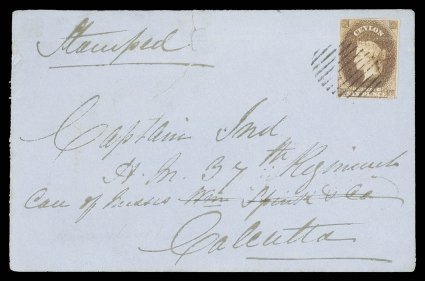 Stamped
CEYLON
SIX PENCE
Captain Ind
H. M. 37th Regiment
Care of Messrs Wm Spink & Co
Calcutta